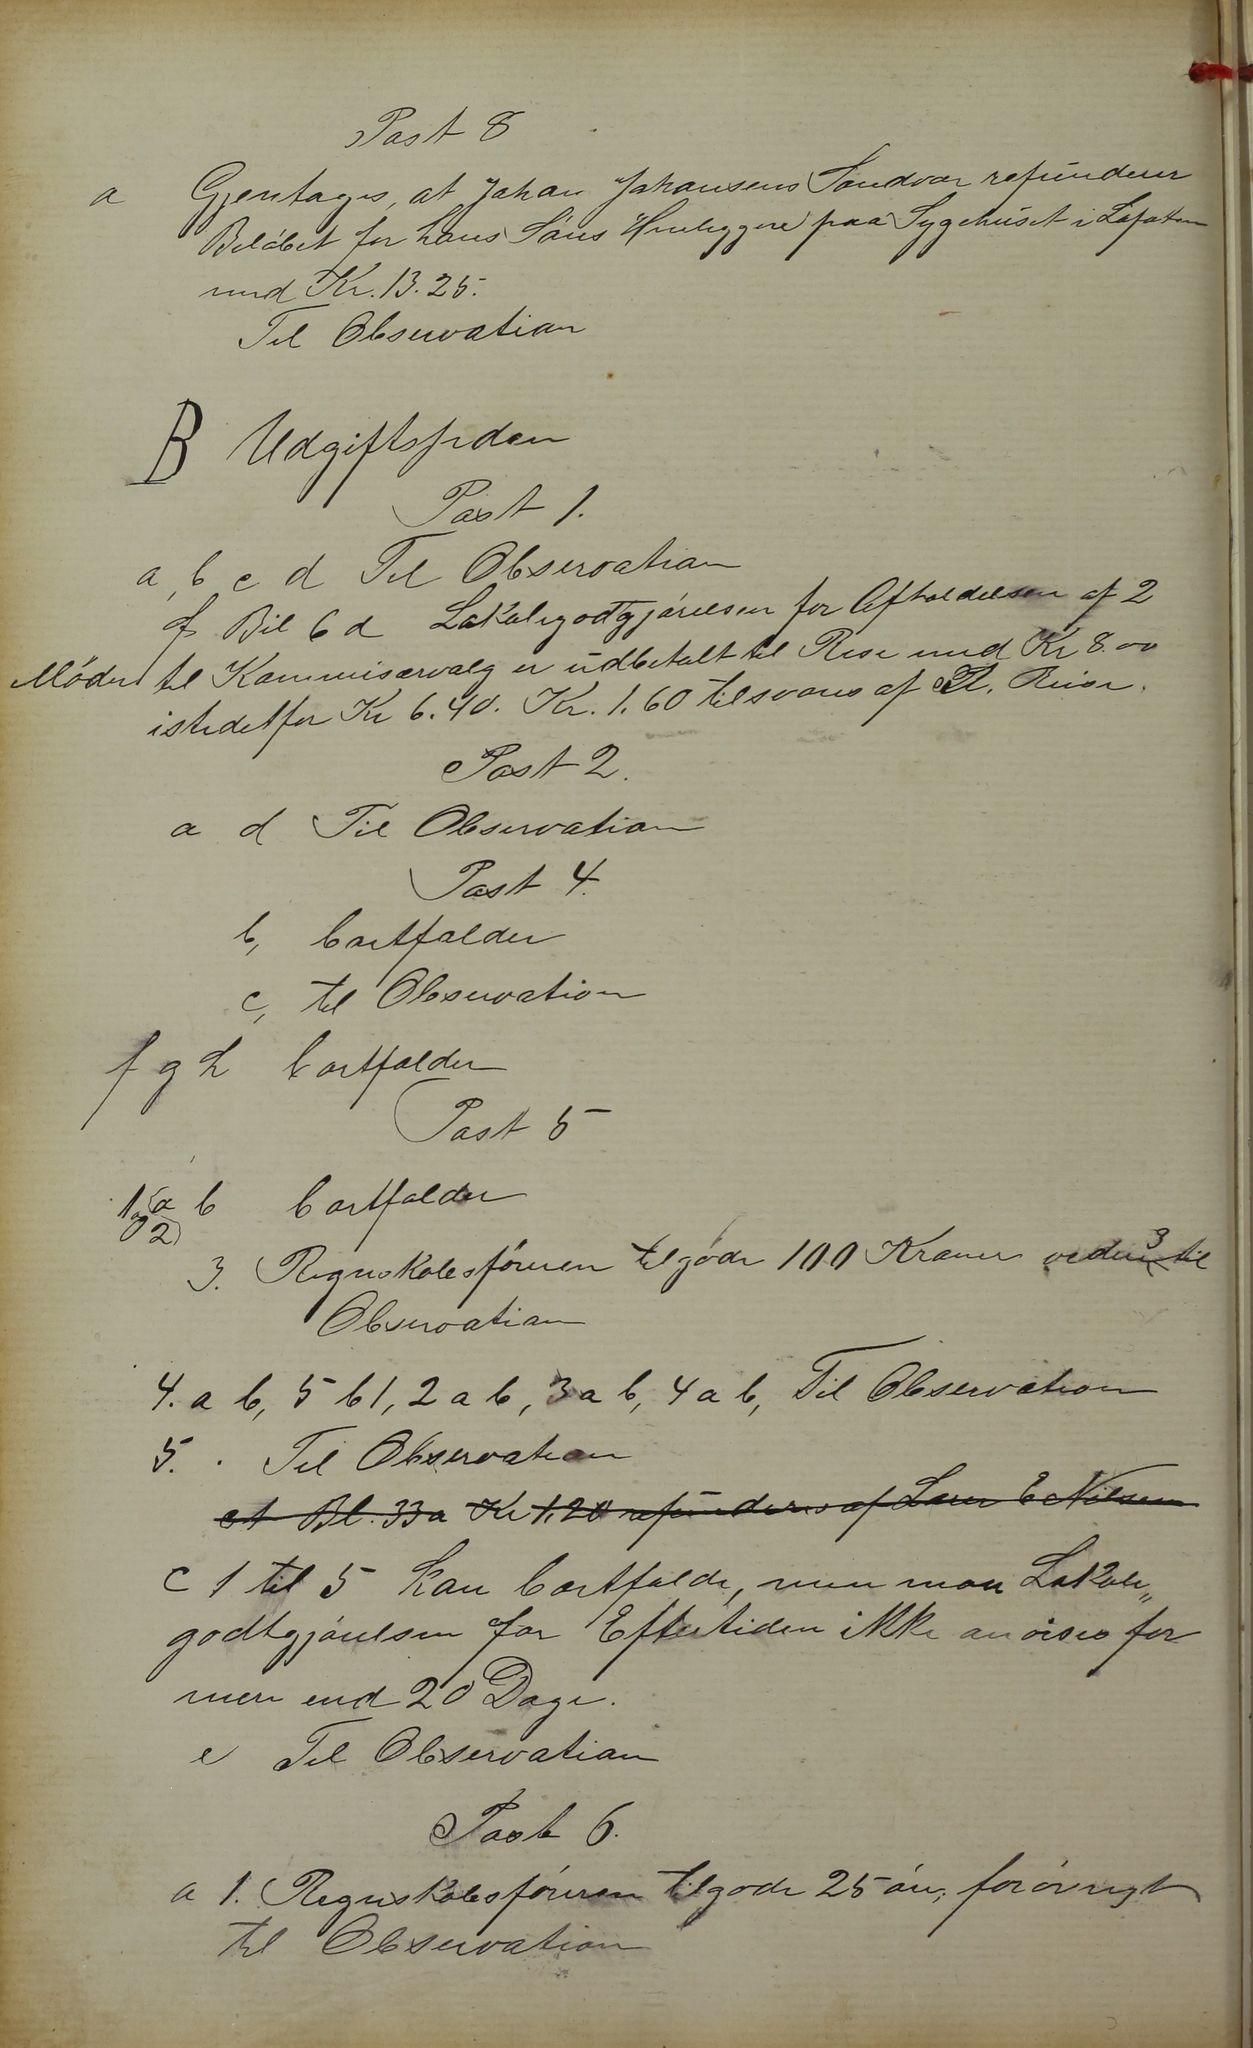 Post 8
a Gjentages, at Johan Johansens Sandvær refunderer
Beløbet for hans Søns Henliggen paa Sygehuset i Lofoten
med Kr. 13.25.
Til Observation
B Udgiftssiden
Post 1.
a, b c d Til Observation
f Bil 6 d Lokalegodtgjørelsen for Afholdelsen af 2
Møder til Kommisærvalg er udbetalt til Rese med Kr 8.00
istedetfor Kr 6.40. Kr. 1.60 tilsvares af
Post 2.
a d Til Observation
Post 4.
b, bortfalder
c, til Observation
f g h bortfalder
Post 5
1 a b bortfalder
og 2)
3. Regnskabsføreren tilgode 100 Kroner 3 til
Observation
4. a b, 5 b 1, 2 a b, 3 a b, 4 a b, Til Observation
5. . Til Observation
at Bl. 33a Kr 1,20 refunderes af Lærer E Nilsen
c 1 til 5 kan bortfalde, men maa Lokale„
godtgjørelsen for Eftertiden ikke anvises for
mere end 20 Dage.
e Til Observation
Post 6.
a 1. Regnskabsføreren tilgode 25 øre, forøvrigt
til Observation